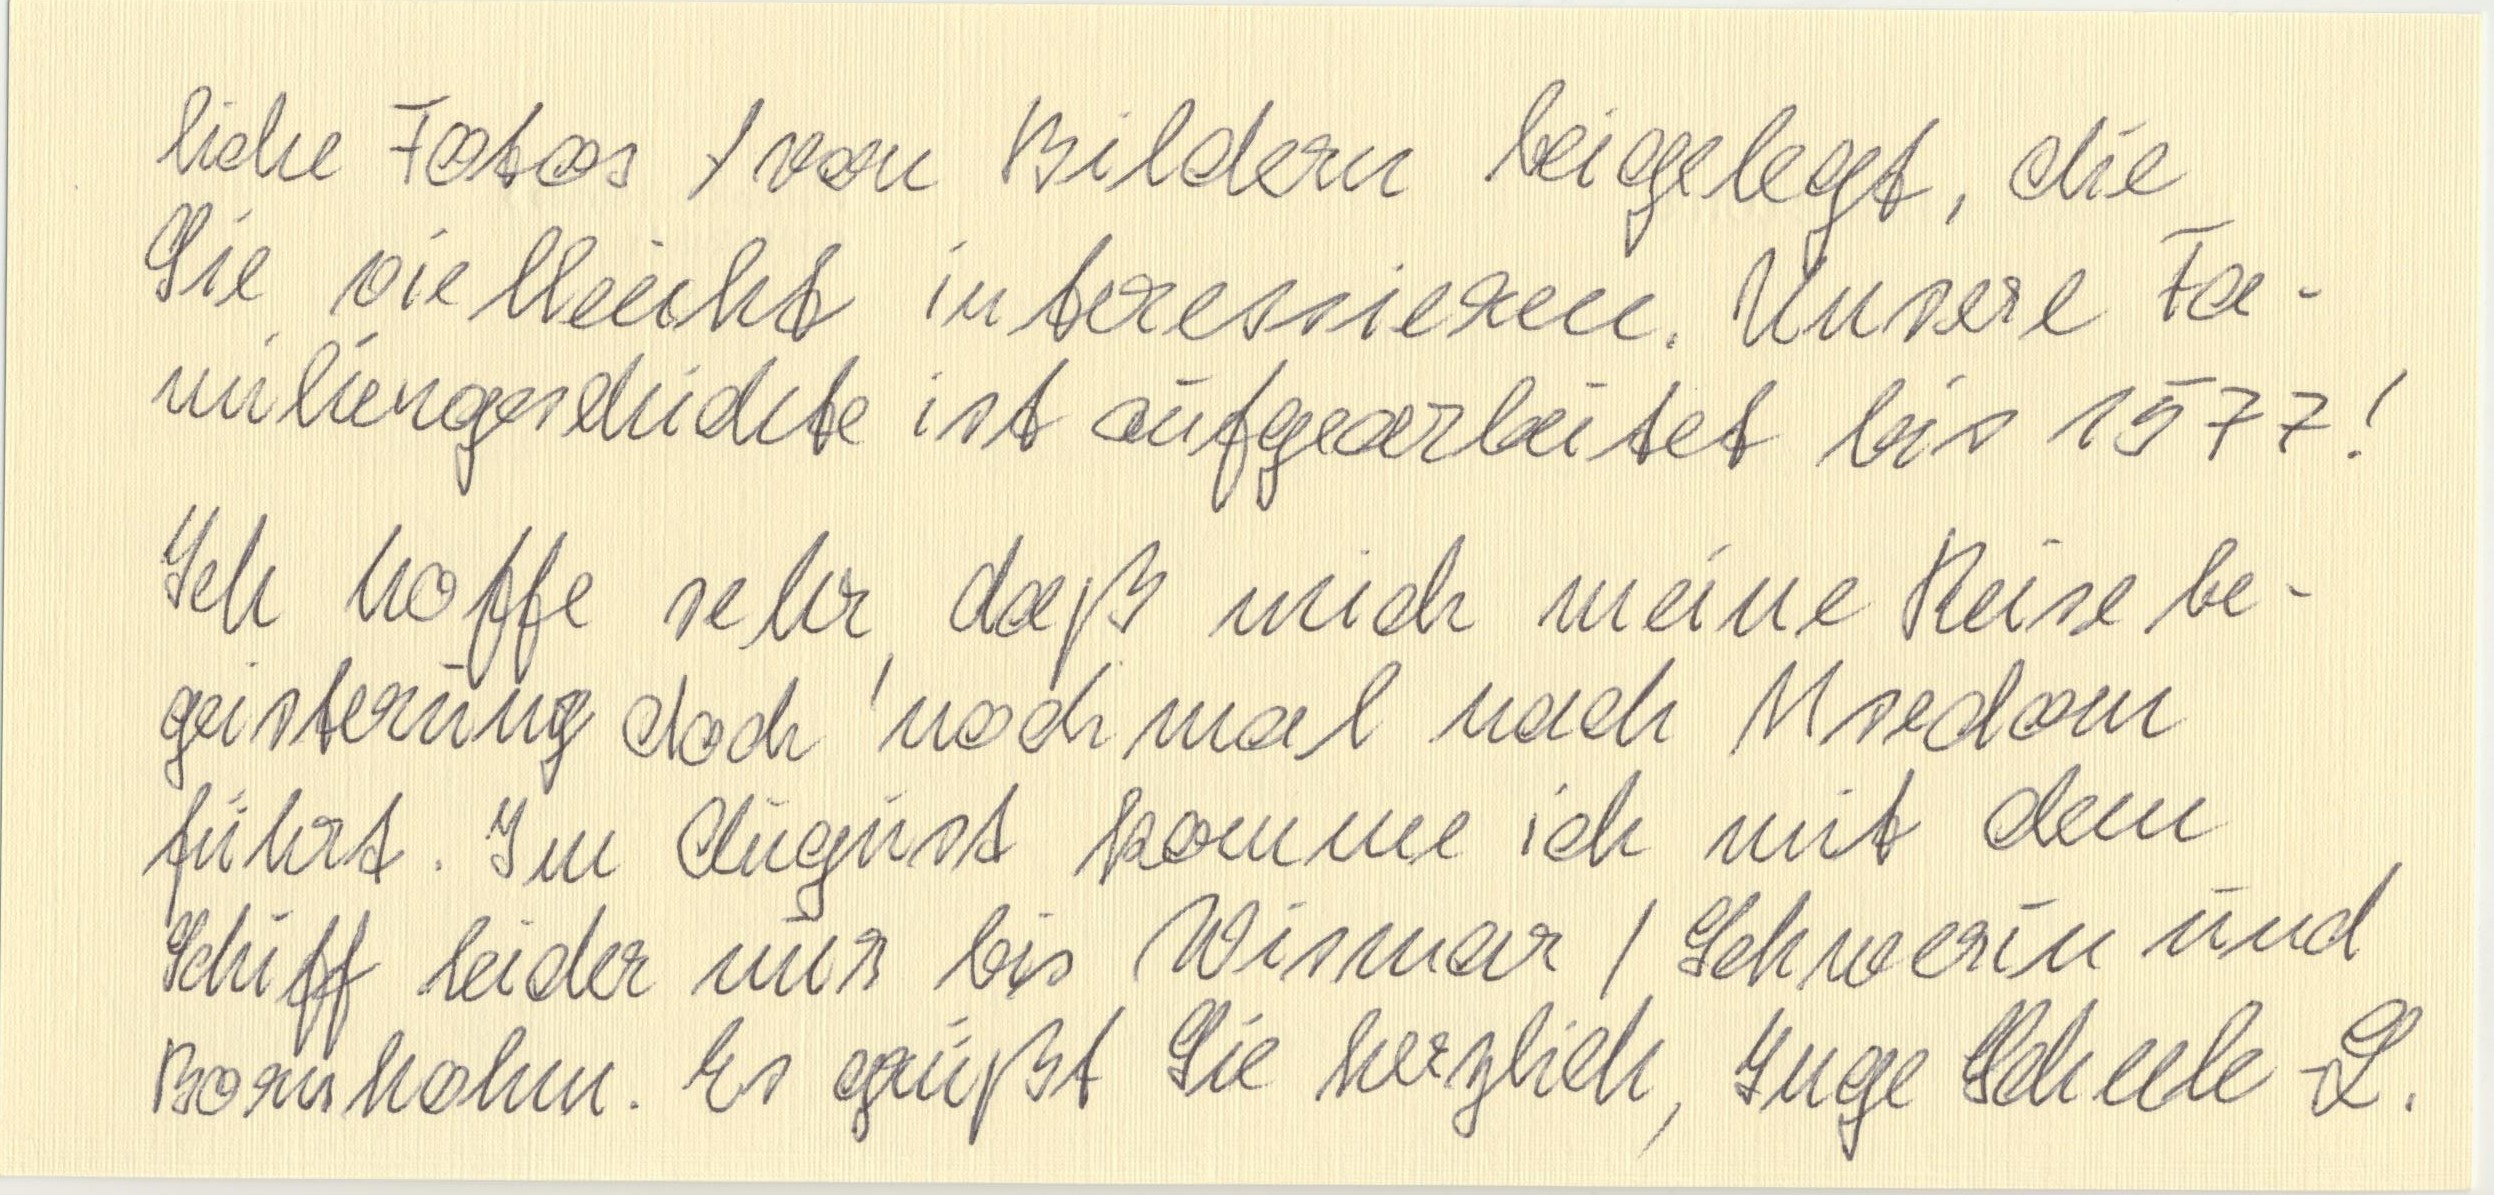 liche Fotos / von Bildern beigelegt, die
Sie vielleicht interessieren. Unsere Fa-
miliengeschichte ist aufgearbeitet bis 1577!
Ich hoffe sehr, daß mich meine Reise be-
geisterung doch nochmal nach Usedom
führt. Im August komme ich mit dem
Schiff leider nur bis Wismar / Schwerin und
Bornholm. Es grüßt Sie herzlich, Inge Scheele - L.